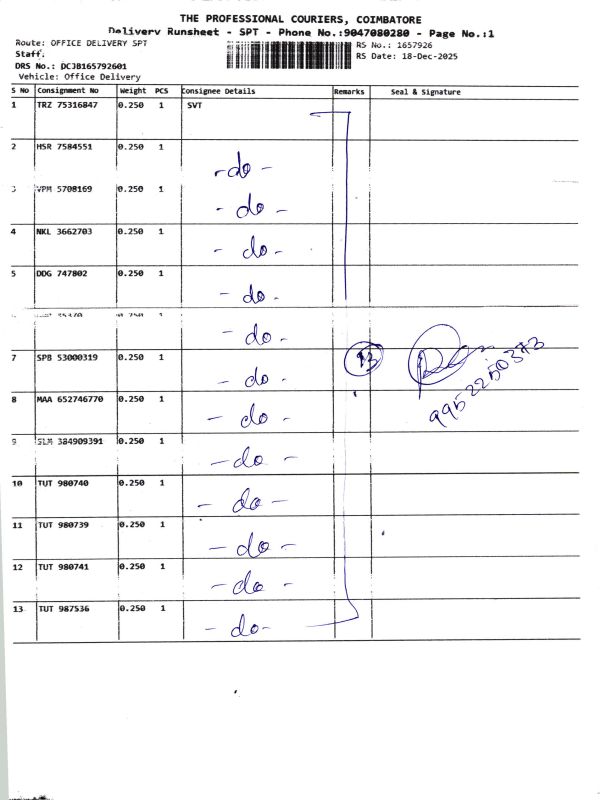 THE PROFESSIONAL COURIERS, COIMBATORE
Delivery Runsheet - SPT - Phone No.:9047080280 - Page No.:1
Route: OFFICE DELIVERY SPT
Staff:
DRS No.: DCJB165792601
Vehicle: Office Delivery
RS No.: 1657926
RS Date: 18-Dec-2025
S No Consignment No Weight PCS Consignee Details Remarks Seal & Signature
1 TRZ 75316847 0.250 1 SVT
2 HSR 7584551 0.250 1 - do -
3 VPM 5708169 0.250 1 - do -
4 NKL 3662703 0.250 1 - do -
5 DDG 747802 0.250 1 - do -
- do -
7 SPB 53000319 0.250 1 - do - 13
9952250373
8 MAA 652746770 0.250 1 - do -
9 SLM 384909391 0.250 1 - do -
10 TUT 980740 0.250 1 - do -
11 TUT 980739 0.250 1 - do -
12 TUT 980741 0.250 1 - do -
13 TUT 987536 0.250 1 - do -